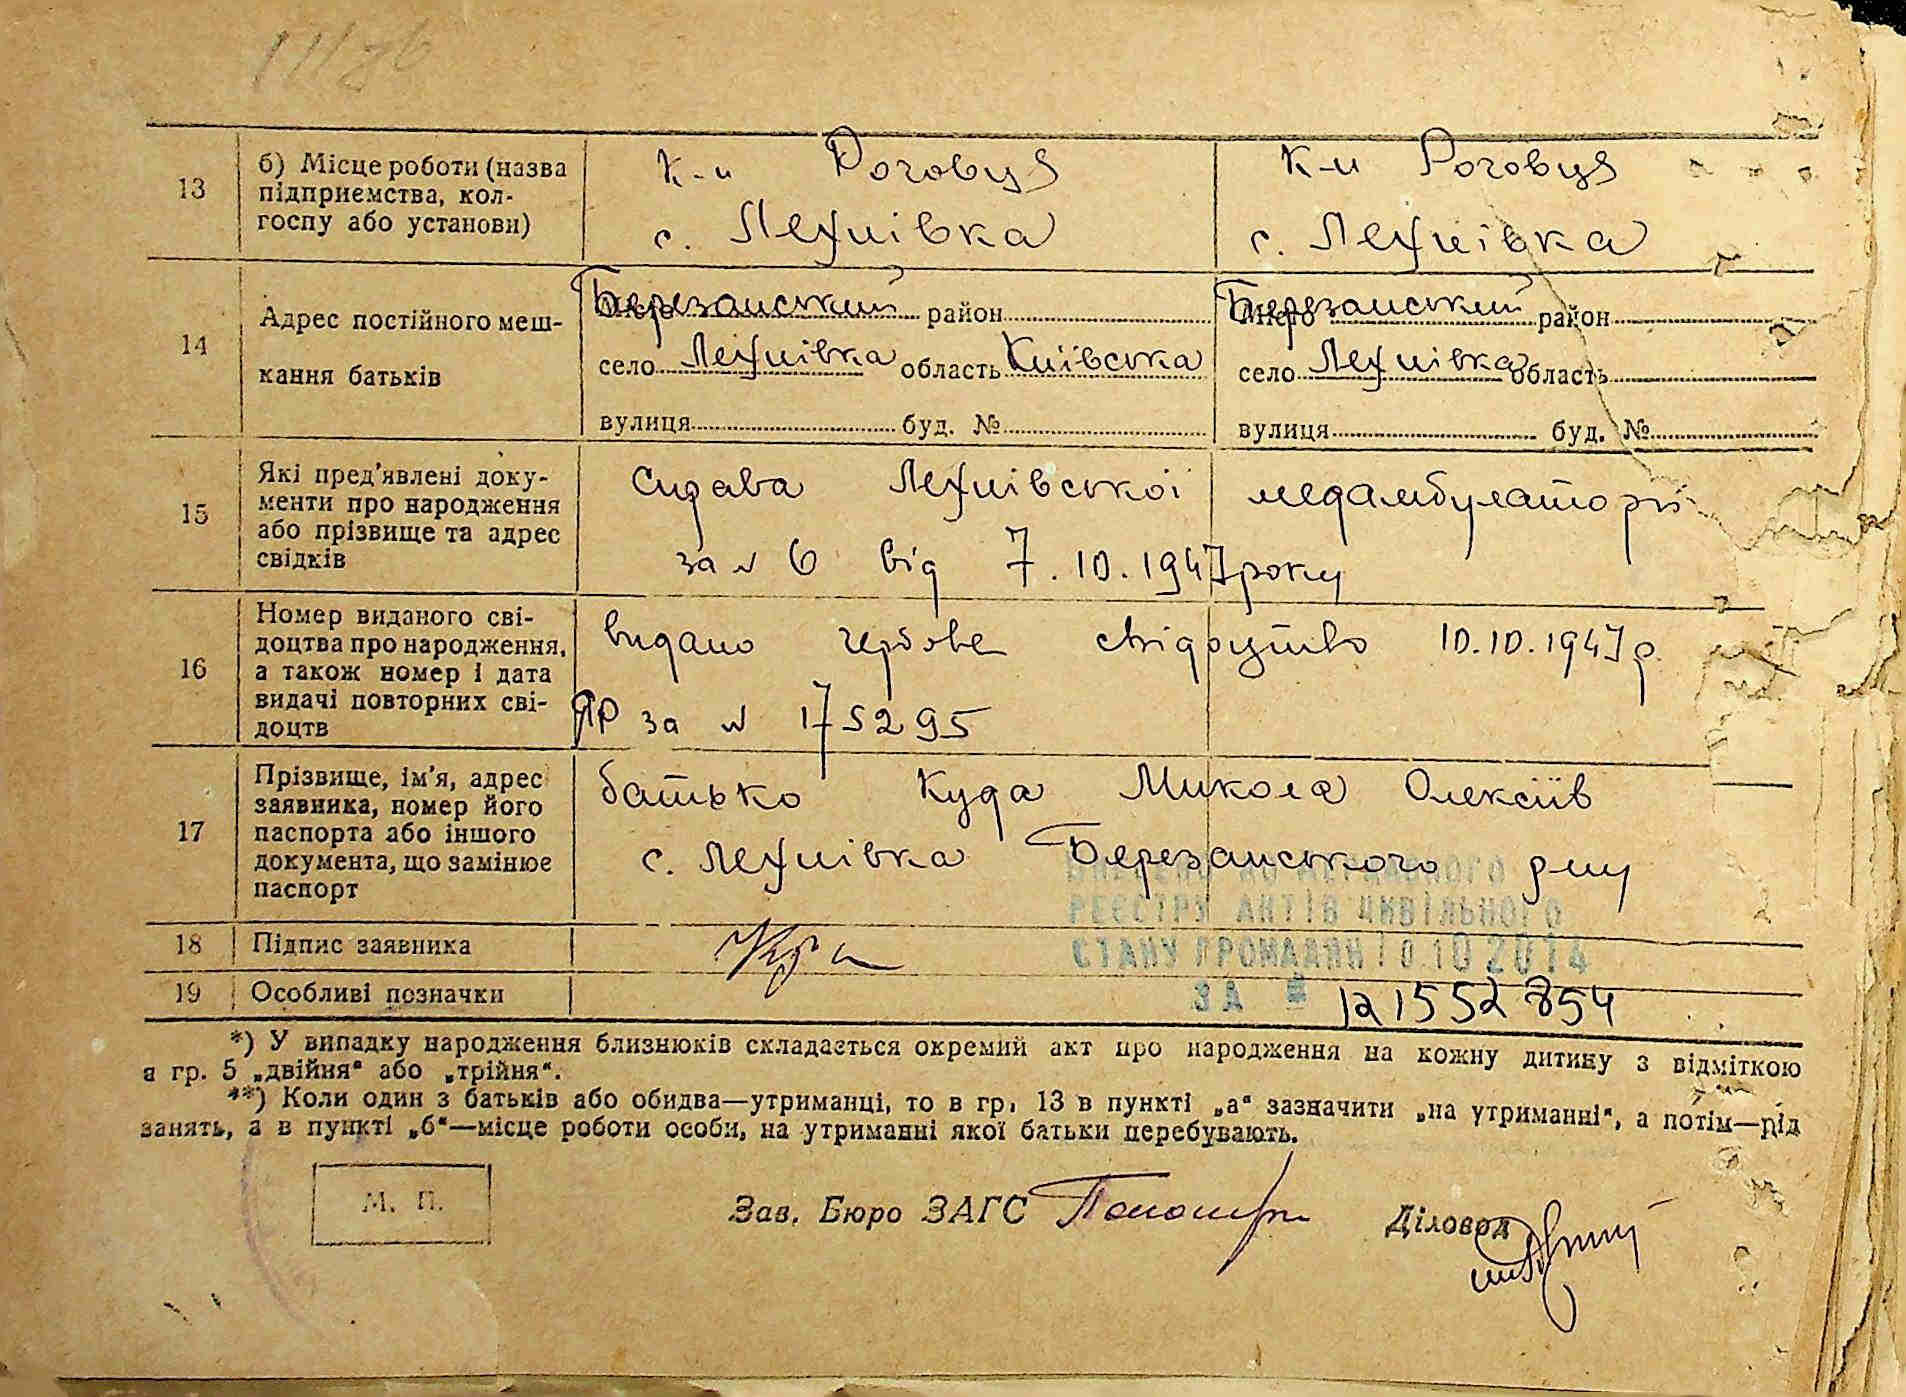 11/86
13
б) Місце роботи (назва підприємства, кол-
госпу або установи)
к-п Роговця
с. Лехнівка
к-п Роговця
с. Лехнівка
14
Адрес постійного меш-
кання батьків
Березанський район
село Лехнівка область Київська
вулиця буд. №
Місто Березанський район
село Лехнівка область
вулиця буд. №
15
Які пред'явлені доку-
менти про народження
або прізвище та адрес
свідків
Справа Лехнівської медамбулаторії
за № 6 від 7.10.1947 року
16
Номер виданого сві-
доцтва про народження,
а також номер і дата
видачі повторних сві-
доцтв
видано гербове свідоцтво 10.10.1947 р.
ЯР за № 175295
17
Прізвище, ім'я, адрес
заявника, номер його
паспорта або іншого
документа, що замінює
паспорт
батько Куда Микола Олексіїв
с. Лехнівка Березанського р-ну
ВНЕСЕНО ДО ДЕРЖАВНОГО
РЕЄСТРУ АКТІВ ЦИВІЛЬНОГО
СТАНУ ГРОМАДЯН 10.10 2014
ЗА № 121552854
18 Підпис заявника
19 Особливі позначки
*) У випадку народження близнюків складається окремий акт про народження на кожну дитину з відміткою
в гр. 5 „двійня“ або „трійня“.
**) Коли один з батьків або обидва—утриманці, то в гр. 13 в пункті „а“ зазначити „на утриманні“, а потім—рід
занять, а в пункті „б“—місце роботи особи, на утриманні якої батьки перебувають.
М. П.
Зав. Бюро ЗАГС
Діловод